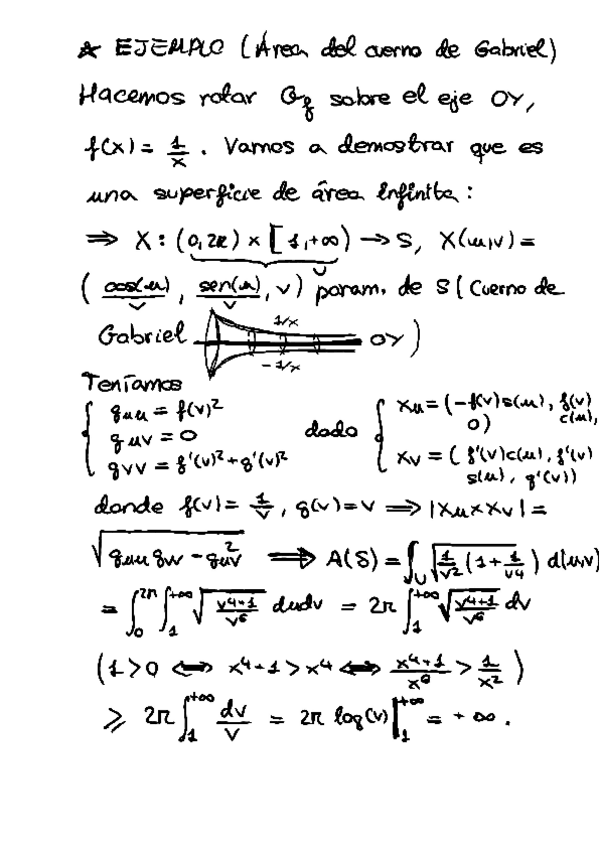 * EJEMPLO (Área del cuerno de Gabriel)
Hacemos rotar G_f sobre el eje OY,
f(x) = 1/x . Vamos a demostrar que es
una superficie de área infinita:
⇒ X: (0,2π) × [1,+∞) → S, X(u,v) =
(cos(u)/v, sen(u)/v, v) param. de S (Cuerno de
Gabriel 1/x -1/x OY)
Teníamos
{ g_uu = f(v)² g_uv = 0 g_vv = f'(v)² + g'(v)² dado { X_u = (-f(v)s(u), f(v)c(u), 0) X_v = (f'(v)c(u), f'(v)s(u), g'(v))
donde f(v) = 1/v, g(v) = v ⇒ |X_u × X_v| =
√(g_uu g_vv - g_uv²) ⇒ A(S) = ∫_U √(1/v² (1 + 1/v⁴)) d(u,v)
= ∫_0^{2π} ∫_1^{+∞} √((v⁴+1)/v⁶) dudv = 2π ∫_1^{+∞} √((v⁴+1)/v⁶) dv
(1 > 0 ⇔ x⁴+1 > x⁴ ⇔ (x⁴+1)/x⁶ > 1/x²)
≥ 2π ∫_1^{+∞} dv/v = 2π log(v)|_1^{+∞} = +∞.